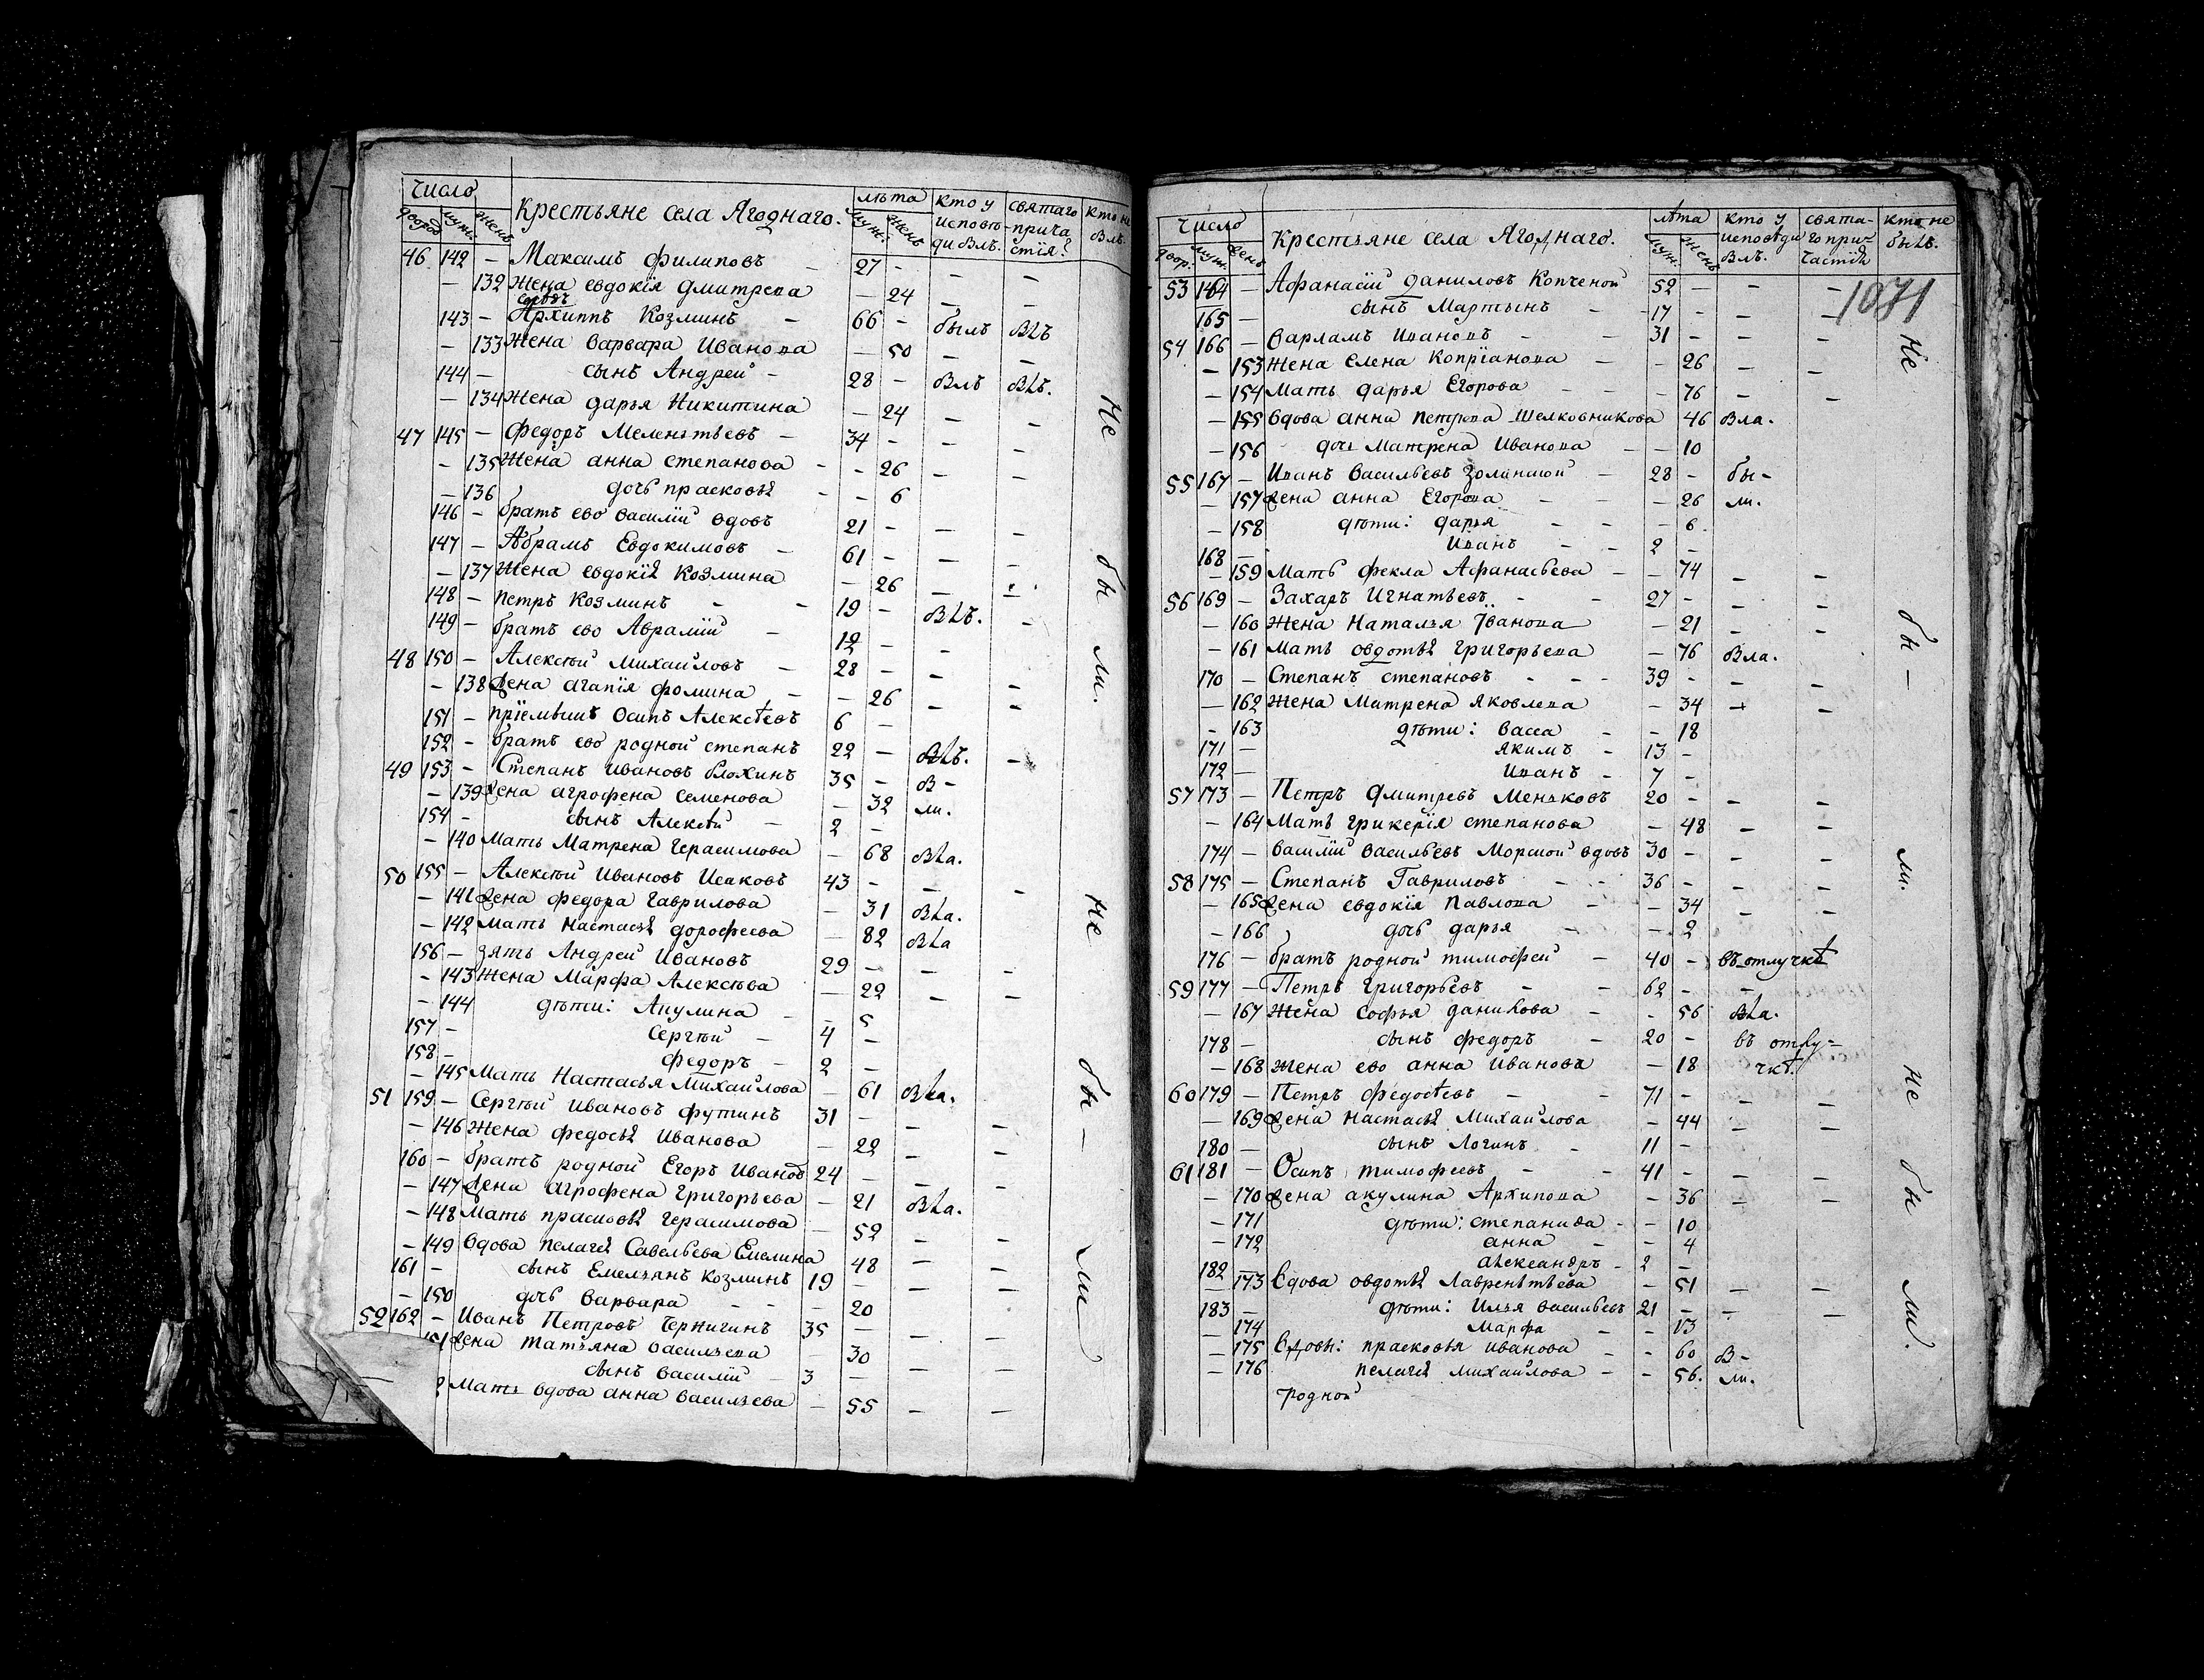 Число Крестьяне села Ягоднаго. лѣта кто у исповѣди былъ. святаго причастія? кто не былъ.
дворов муж. женъ муж. женъ
46 142 – Максимъ филиповъ – 27 – – –
– 132 Жена евдокія дмитрева – 24 – –
вдовъ
143 – Архиппъ Козминъ – 66 – былъ былъ
– 133 Жена варвара Иванова – 50 – –
144 – сынъ Андрей – 28 – былъ былъ.
– 134 Жена дарья Никитина – 24 – –
47 145 – федоръ Мелентьевъ – 34 – – –
– 135 Жена анна степанова – – 26 – –
– 136 дочь прасковья – – 6
146 – братъ ево василій вдовъ 21 – – –
147 – Абрамъ Евдокимовъ – 61 – – –
– 137 Жена евдокія Козмина – 26 – –
148 – петръ Козминъ – – 19 – былъ. –
149 – братъ ево Аврамій – 12 – –
48 150 – Алексѣй михайловъ – 28 – – –
– 138 Жена агапія фомина – – 26 – –
151 – пріемышъ Осипъ Алексѣевъ 6 –
152 – братъ ево родной степанъ 22 – былъ. –
49 153 – Степанъ ивановъ блохинъ 35 – бы –
– 139 Жена агрофена семенова – 32 ли.
154 – сынъ Алексѣй – 2 –
– 140 Мать Матрена герасимова – 68 была.
50 155 – Алексѣй Ивановъ Исаковъ 43 – – –
– 141 Жена федора гаврилова – 31 была.
– 142 Мать настасья дорофеева – 82 была
156 – зять Андрей Ивановъ 29 – – –
– 143 Жена Марфа Алексѣва – 22 – –
– 144 дѣти: Акулина – – 5
157 – Сергѣй – 4 –
158 – федоръ – 2 –
– 145 Мать Настасья Михайлова – 61 была.
51 159 – Сергѣй Ивановъ футинъ 31 – – –
– 146 Жена федосья Иванова – 22 – –
160 – братъ родной Егоръ Иванов 24 – – –
– 147 Жена Агрофена григорьева – 21 была.
– 148 Мать прасковья герасимова – 52 – –
– 149 вдова пелагея Савельева Емелина 48 – –
161 – сынъ Емельянъ козминъ 19 – – –
– 150 дочь варвара – – – 20
52 162 – Иванъ Петровъ Чернигинъ 35 – – –
151 Жена татьяна васильева – 30 – –
сынъ василій – 3 –
Мать вдова анна васильева – 55 – –
не бы ли.
не бы – ли
Число Крестьяне села Ягоднаго. лѣта кто у исповѣди былъ. свята-го при-частія кто не былъ.
двор. муж. женъ муж. женъ
1071
53 164 – Афанасій даниловъ Копченой 52 – – –
165 – сынъ Мартынъ – 17 – – –
54 166 – варламъ ивановъ – 31 – – –
– 153 Жена елена копріанова – – 26 – –
– 154 Мать дарья Егорова – – 76 – –
– 155 вдова анна петрова шелковникова 46 была.
– 156 дочь Матрена Иванова – – 10
55 167 – Иванъ васильевъ 28 – бы –
– 157 Жена анна Егорова – – 26 ли.
– 158 дѣти: дарья – – – 6.
168 – Иванъ – – 2 –
– 159 Мать фекла Афанасьева – – 74 – –
56 169 – Захаръ Игнатьевъ – – 27 – – –
– 160 Жена Наталья Іванова – 21 – –
– 161 Мать овдотья григорьева – 76 была.
170 – Степанъ степановъ – – – 39 – – –
– 162 Жена Матрена яковлева – 34 – –
– 163 дѣти: васса – – 18
171 – якимъ – 13 –
172 – Иванъ – 7 –
57 173 – Петръ дмитревъ Меньковъ 20 – – –
– 164 Мать гликерія степанова – 48 – –
174 – василій васильевъ Морской вдовъ 30 – – –
58 175 – Степанъ Гавриловъ – – 36 – – –
– 165 Жена евдокія Павлова – – 34 – –
– 166 дочь дарья – – 2
176 – братъ родной тимофей – 40 – въ отлучкѣ
59 177 – Петръ григорьевъ – – 62 – –
– 167 Жена софья данилова – – 56 была.
178 – сынъ федоръ – 20 – въ отлу-
– 168 Жена ево анна иванова – 18 чкѣ.
60 179 – Петръ федосѣевъ – – 71 – – –
– 169 Жена настасья михайлова – 44 – –
180 – сынъ логинъ – 11 –
61 181 – Осипъ тимофеевъ – – 41 – – –
– 170 Жена акулина Архипова – 36 – –
– 171 дѣти: степанида – – 10
– 172 анна – – 4
182 – александръ – 2 –
– 173 вдова овдотья лаврентьева – 51 – –
183 – дѣти: Илья васильевъ 21 – – –
– 174 Марфа – – 13
– 175 вдовы: прасковья иванова – – 60 бы –
– 176 пелагея михайлова – – 56. ли.
родной
не бы – ли.
не бы ли.